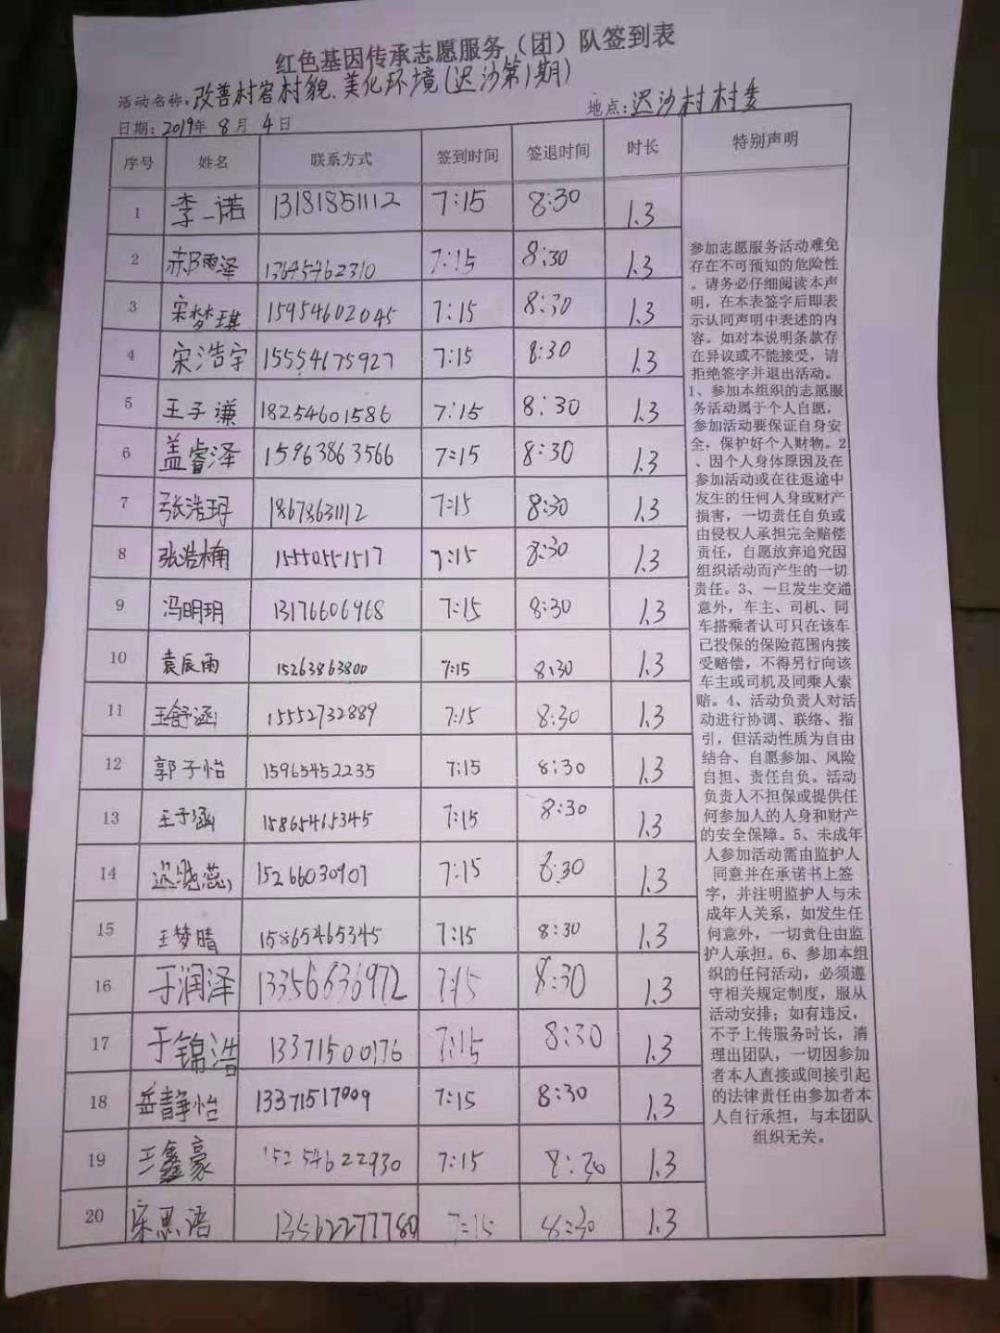 红色基因传承志愿服务（团）队签到表
活动名称：改善村容村貌、美化环境（迟沙第1期）
地点：迟沙村村委
日期：2019年 8月 4日
序号 姓名 联系方式 签到时间 签退时间 时长 特别声明
1 李一诺 13181851112 7:15 8:30 1.3
2 郝雨泽 13645462310 7:15 8:30 1.3
3 宋梦琪 15954602045 7:15 8:30 1.3
4 宋浩宇 15554675927 7:15 8:30 1.3
5 王子谦 18254601586 7:15 8:30 1.3
6 盖睿泽 15963863566 7:15 8:30 1.3
7 张浩玥 18678631112 7:15 8:30 1.3
8 张浩楠 15550551517 7:15 8:30 1.3
9 冯明玥 13176606968 7:15 8:30 1.3
10 袁辰雨 15263863800 7:15 8:30 1.3
11 王舒涵 15552732889 7:15 8:30 1.3
12 郭子怡 15965452235 7:15 8:30 1.3
13 王子涵 15865465345 7:15 8:30 1.3
14 迟晓蕊 15266030907 7:15 8:30 1.3
15 王梦晴 15865465345 7:15 8:30 1.3
16 于润泽 13356636972 7:15 8:30 1.3
17 于锦浩 13371500176 7:15 8:30 1.3
18 岳静怡 13371517009 7:15 8:30 1.3
19 王鑫豪 15254622930 7:15 8:30 1.3
20 宋思语 13562277780 7:15 8:30 1.3
参加志愿服务活动难免
存在不可预知的危险性
，请务必仔细阅读本声
明，在本表签字后即表
示认同声明中表述的内
容。如对本说明条款存
在异议或不能接受，请
拒绝签字并退出活动。
1、参加本组织的志愿服
务活动属于个人自愿，
参加活动要保证自身安
全，保护好个人财物。2
、因个人身体原因及在
参加活动或在往返途中
发生的任何人身或财产
损害，一切责任自负或
由侵权人承担完全赔偿
责任，自愿放弃追究因
组织活动而产生的一切
责任。3、一旦发生交通
意外，车主、司机、同
车搭乘者认可只在该车
已投保的保险范围内接
受赔偿，不得另行向该
车主或司机及同乘人索
赔。4、活动负责人对活
动进行协调、联络、指
引，但活动性质为自由
结合、自愿参加、风险
自担、责任自负。活动
负责人不担保或提供任
何参加人的人身和财产
的安全保障。5、未成年
人参加活动需由监护人
同意并在承诺书上签
字，并注明监护人与未
成年人关系，如发生任
何意外，一切责任由监
护人承担。6、参加本组
织的任何活动，必须遵
守相关规定制度，服从
活动安排；如有违反，
不予上传服务时长，清
理出团队，一切因参加
者本人直接或间接引起
的法律责任由参加者本
人自行承担，与本团队
组织无关。